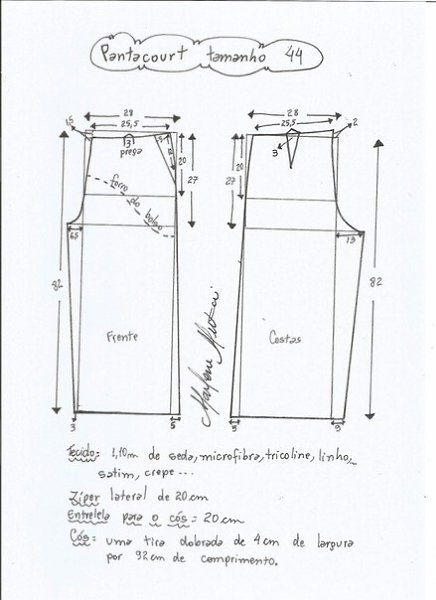 Pantacourt tamanho 44
28
25,5
1,5
3
prega
5
20
27
forro do bolso
6,5
82
Frente
3
5
Marlene Mukai
28
25,5
2
3
20
27
13
82
Costas
5
Tecido: 1,10m de seda, microfibra, tricoline, linho,
satim, crepe ...
Zíper lateral de 20 cm
Entretela para o cós = 20 cm
Cós: uma tira dobrada de 4 cm de largura
por 92 cm de comprimento.